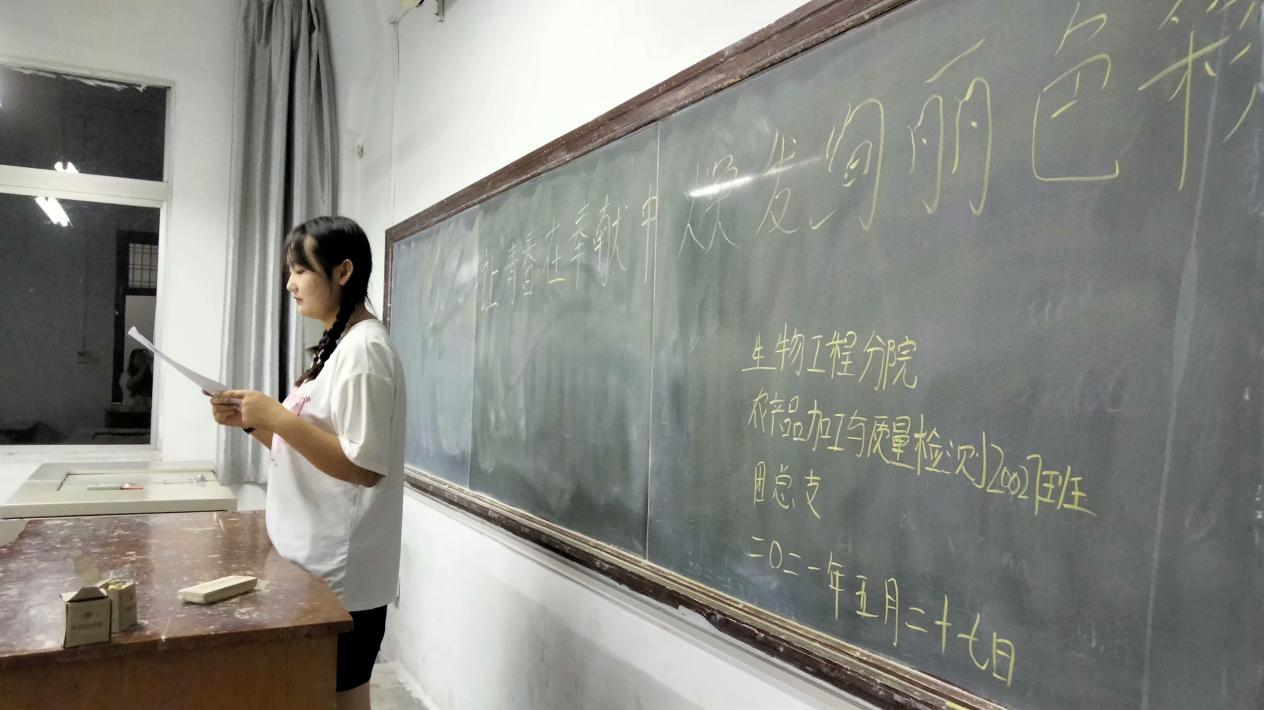 让青春在奉献中焕发绚丽色彩
生物工程分院
农产品加工与质量检测2002班
团总支
二〇二一年五月二十七日